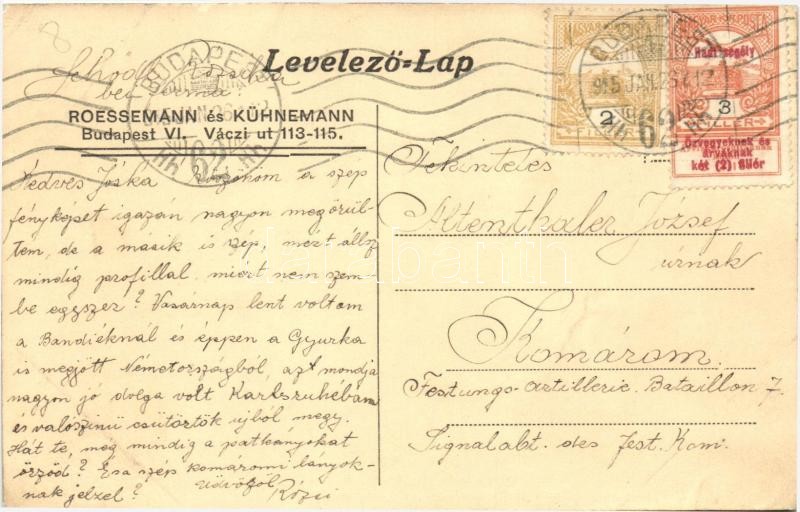 8
Levelező-Lap
bei
ROESSEMANN és KÜHNEMANN
Budapest VI., Váczi ut 113-115.
BUDAPEST
62
BUDAPEST
915 JAN. 26
62
MAGYAR KIR. POSTA
2
FILLÉR
Hadi segély
3
FILLÉR
Özvegyeknek és
árváknak
két (2) fillér
Kedves Jóska Köszönöm a szép
fényképet igazán nagyon megörül-
tem, de a masik is szép, mért állsz
mindig profillal, miért nem szem-
be egyszer? Vasárnap lent voltam
a Bandiéknál és éppen a Gyurka
is megjött Németországból, azt mondja
nagyon jó dolga volt Karlsruhéban
és valószinü csütörtök ujból megy.
Hát te, meg mindig a patkányokat
őrzöd? És a szép komáromi lányok-
nak jelzel? Üdvözöl
Rózsi
Tekintetes
Altenthaler József
úrnak
Komárom
Festungs-Artillerie Bataillon 7
Signalabt. des Fest. Kom.